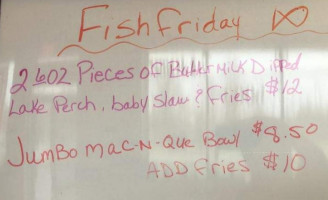 Fish Friday
2 6oz Pieces of ButterMilk Dipped
Lake Perch, baby Slaw & Fries $12
Jumbo Mac-N-Que Bowl $8.50
ADD Fries $10